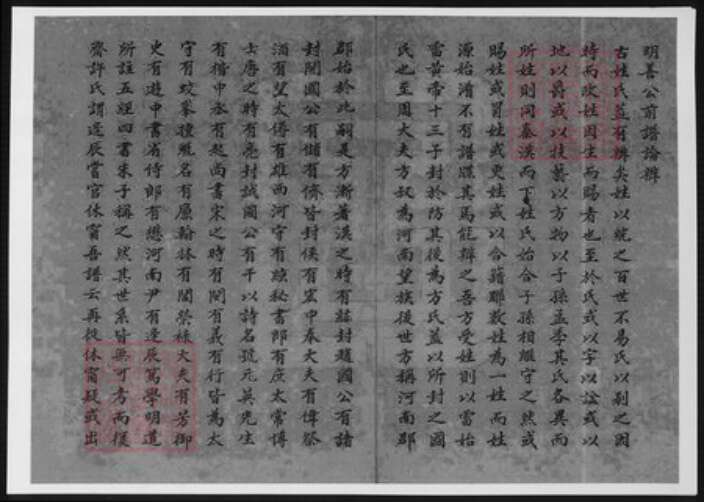 明善公前譜論辯
古姓氏蓋有辨矣姓以統之百世不易氏以別之因
時而改姓因生而賜者也至於氏或以字以諡或以
地以爵或以技藝以方物以子孫孟季其氏各異而
所姓則同秦漢而下姓氏始合子孫相繼守之然或
賜姓或冒姓或更姓或以合籍聯數姓為一姓而姓
源始淆不有譜牒其焉能辯之吾方受姓則以雷始
雷黃帝十三子封於防其後為方氏蓋以所封之國
氏也至周大夫方叔為河南望族後世方稱河南郡
郡始於此嗣是方漸著漢之時有紘封國公有諸
封開國公有儲有儕皆封侯有宏中奉大夫有偉祭
酒有望太傅有雄西河守有秘書郎有庶太常博
士唐之時有亮封誠國公有干以詩名號元英先生
有楷中丞有起尚書宋之時有閔有義有行皆為太
守有蛟摹撫照名有翰林有聞榮祿大夫有芳御
史有遊中書省侍郎有懋河南尹有逢辰篤學明道
所註五經四書朱子稱之然其世系皆無可考而從
齋許氏謂逢辰嘗官休甯吾譜云再從休甯疑或出